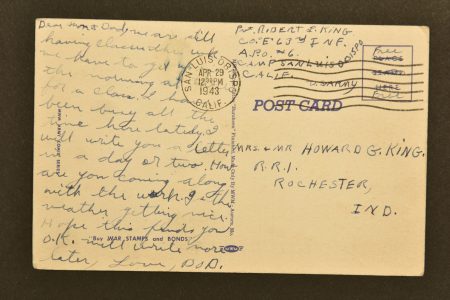 Dear Mom & Dad, we are still
having classes this week
we have to get up
the morning at
for a class. I have
been busy all the
time here lately. I
will write you a letter
in a day or two. How
are you coming along
with the work & the
weather getting nice.
Hope this finds you
O.K. will write more
later, Love, Bob.
"Buy WAR STAMPS and BONDS"
Pvt. ROBERT S. KING
INF.
A.P.O. #6.
CAMP SAN LUIS OBISPO
CALIF. U.S. ARMY
SAN LUIS OBISPO
APR 29
1943
CALIF.
Free
PLACE
STAMP
HERE
Free
POST CARD
MRS. & MR HOWARD G. KING.
R.R.1.
ROCHESTER,
IND.